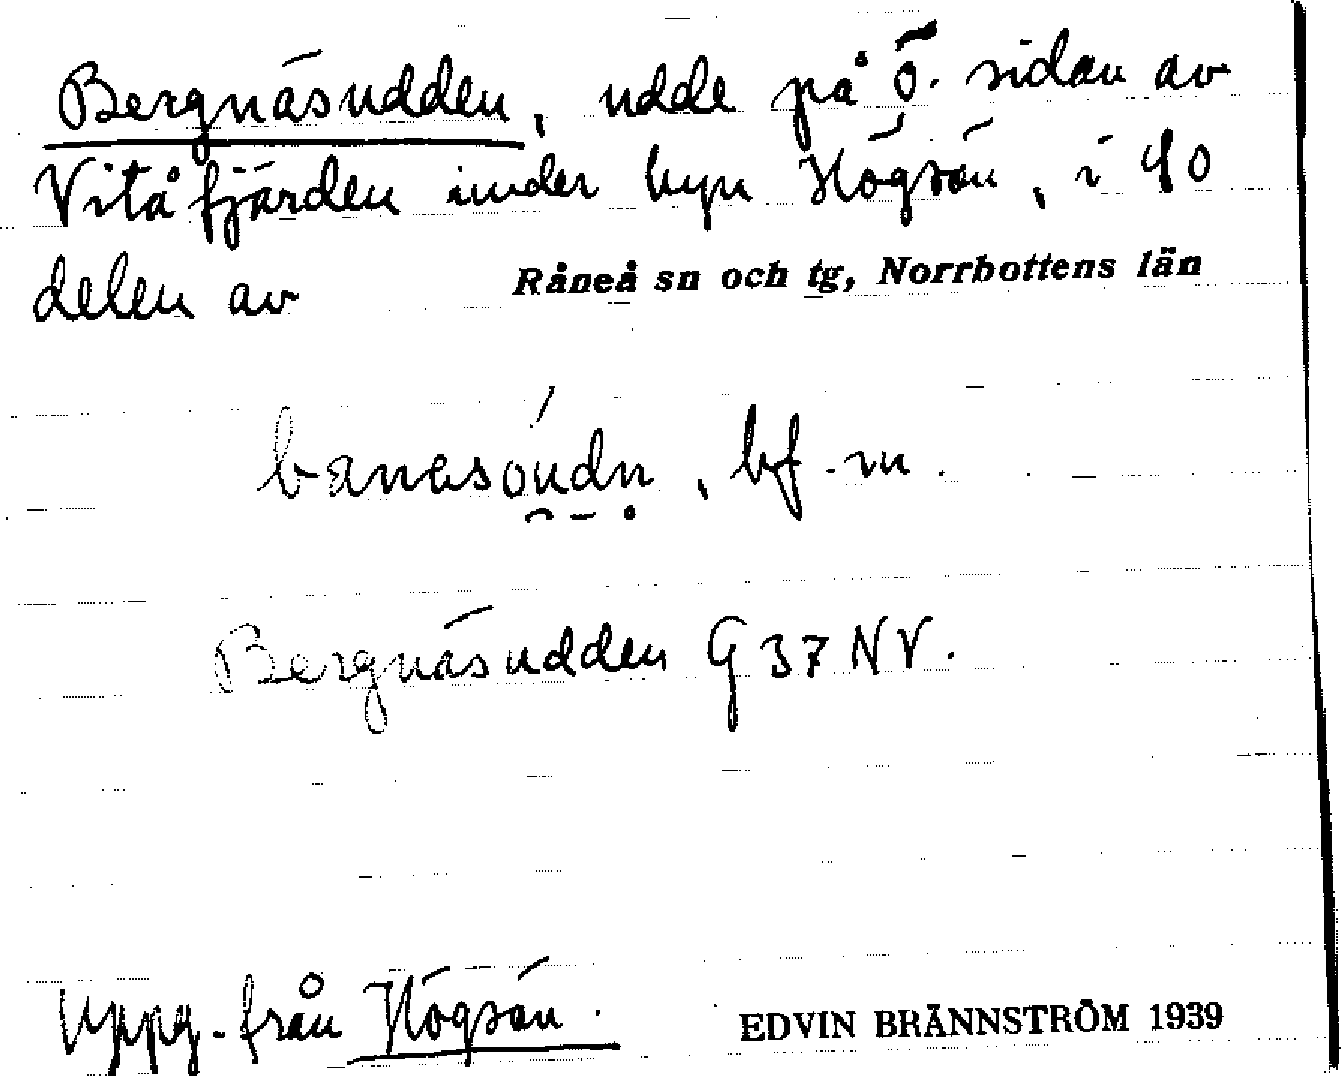 Bergnäsudden, udde på Ö. sidan av
Vitåfjärden under byn Högsön, i SO
delen av Råneå sn och tg, Norrbottens län
banesóudn, bf. m.
Bergnäsudden G 37 NV.
Uppg. från Högsön.
EDVIN BRÄNNSTRÖM 1939